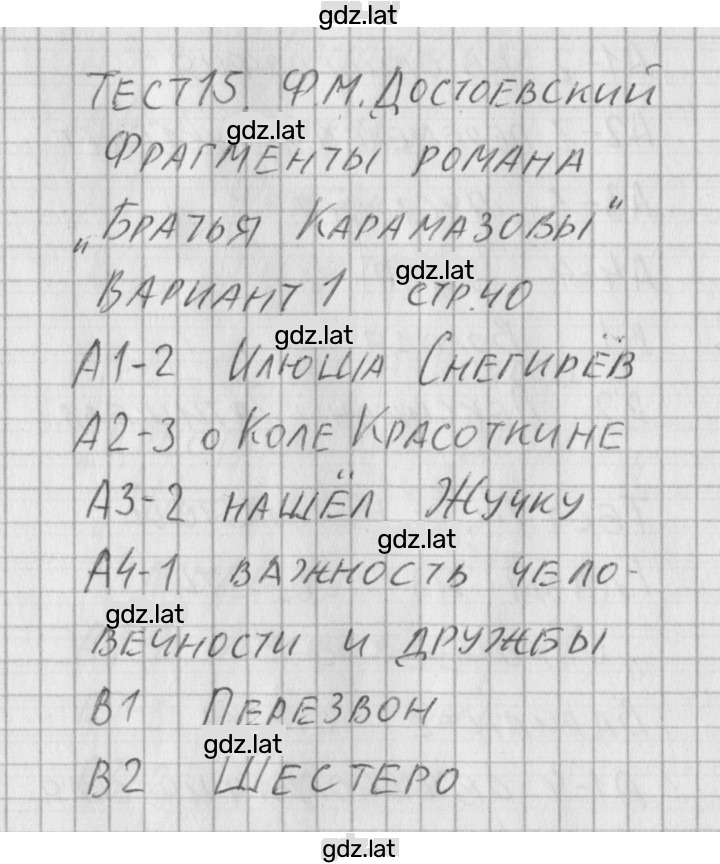 gdz.lat
ТЕСТ 15. Ф.М. ДОСТОЕВСКИЙ
gdz.lat
ФРАГМЕНТЫ РОМАНА
„БРАТЬЯ КАРАМАЗОВЫ"
gdz.lat
ВАРИАНТ 1 СТР.40
gdz.lat
А1-2 ИЛЮША СНЕГИРЁВ
А2-3 о КОЛЕ КРАСОТКИНЕ
А3-2 НАШЁЛ ЖУЧКУ
gdz.lat
А4-1 ВАЖНОСТЬ ЧЕЛО-
gdz.lat
ВЕЧНОСТИ И ДРУЖБЫ
В1 ПЕРЕЗВОН
gdz.lat
В2 ШЕСТЕРО
gdz.lat